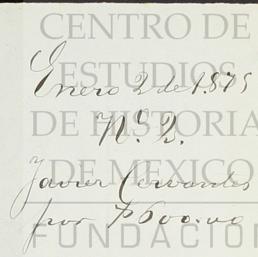 CENTRO DE
ESTUDIOS
Enero 2 de 1875
DE HISTORIA
Nº 2.
DE MEXICO
Javier Cervantes
por $600.00
FUNDACION